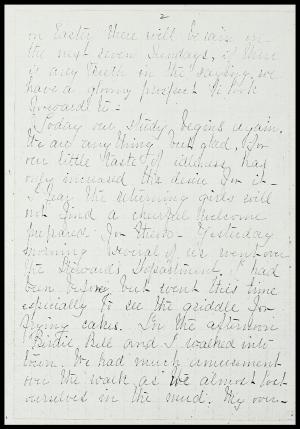 2
on Easter there will be rain on
the next seven Sundays, if there
is any truth in the saying, we
have a gloomy prospect to look
forward to -
Today our study begins again.
We are anything but glad, for
our little taste of idleness has
only increased the desire for it -
I fear the returning girls will
not find a cheerful welcome
prepared for them - Yesterday
morning several of us went over
the Steward's Department, I had
been before, but went this time
especially to see the griddle for
frying cakes. In the afternoon
Birdie, Bell and I walked into
town. We had much amusement
over the walk as we almost lost
ourselves in the mud. My over-